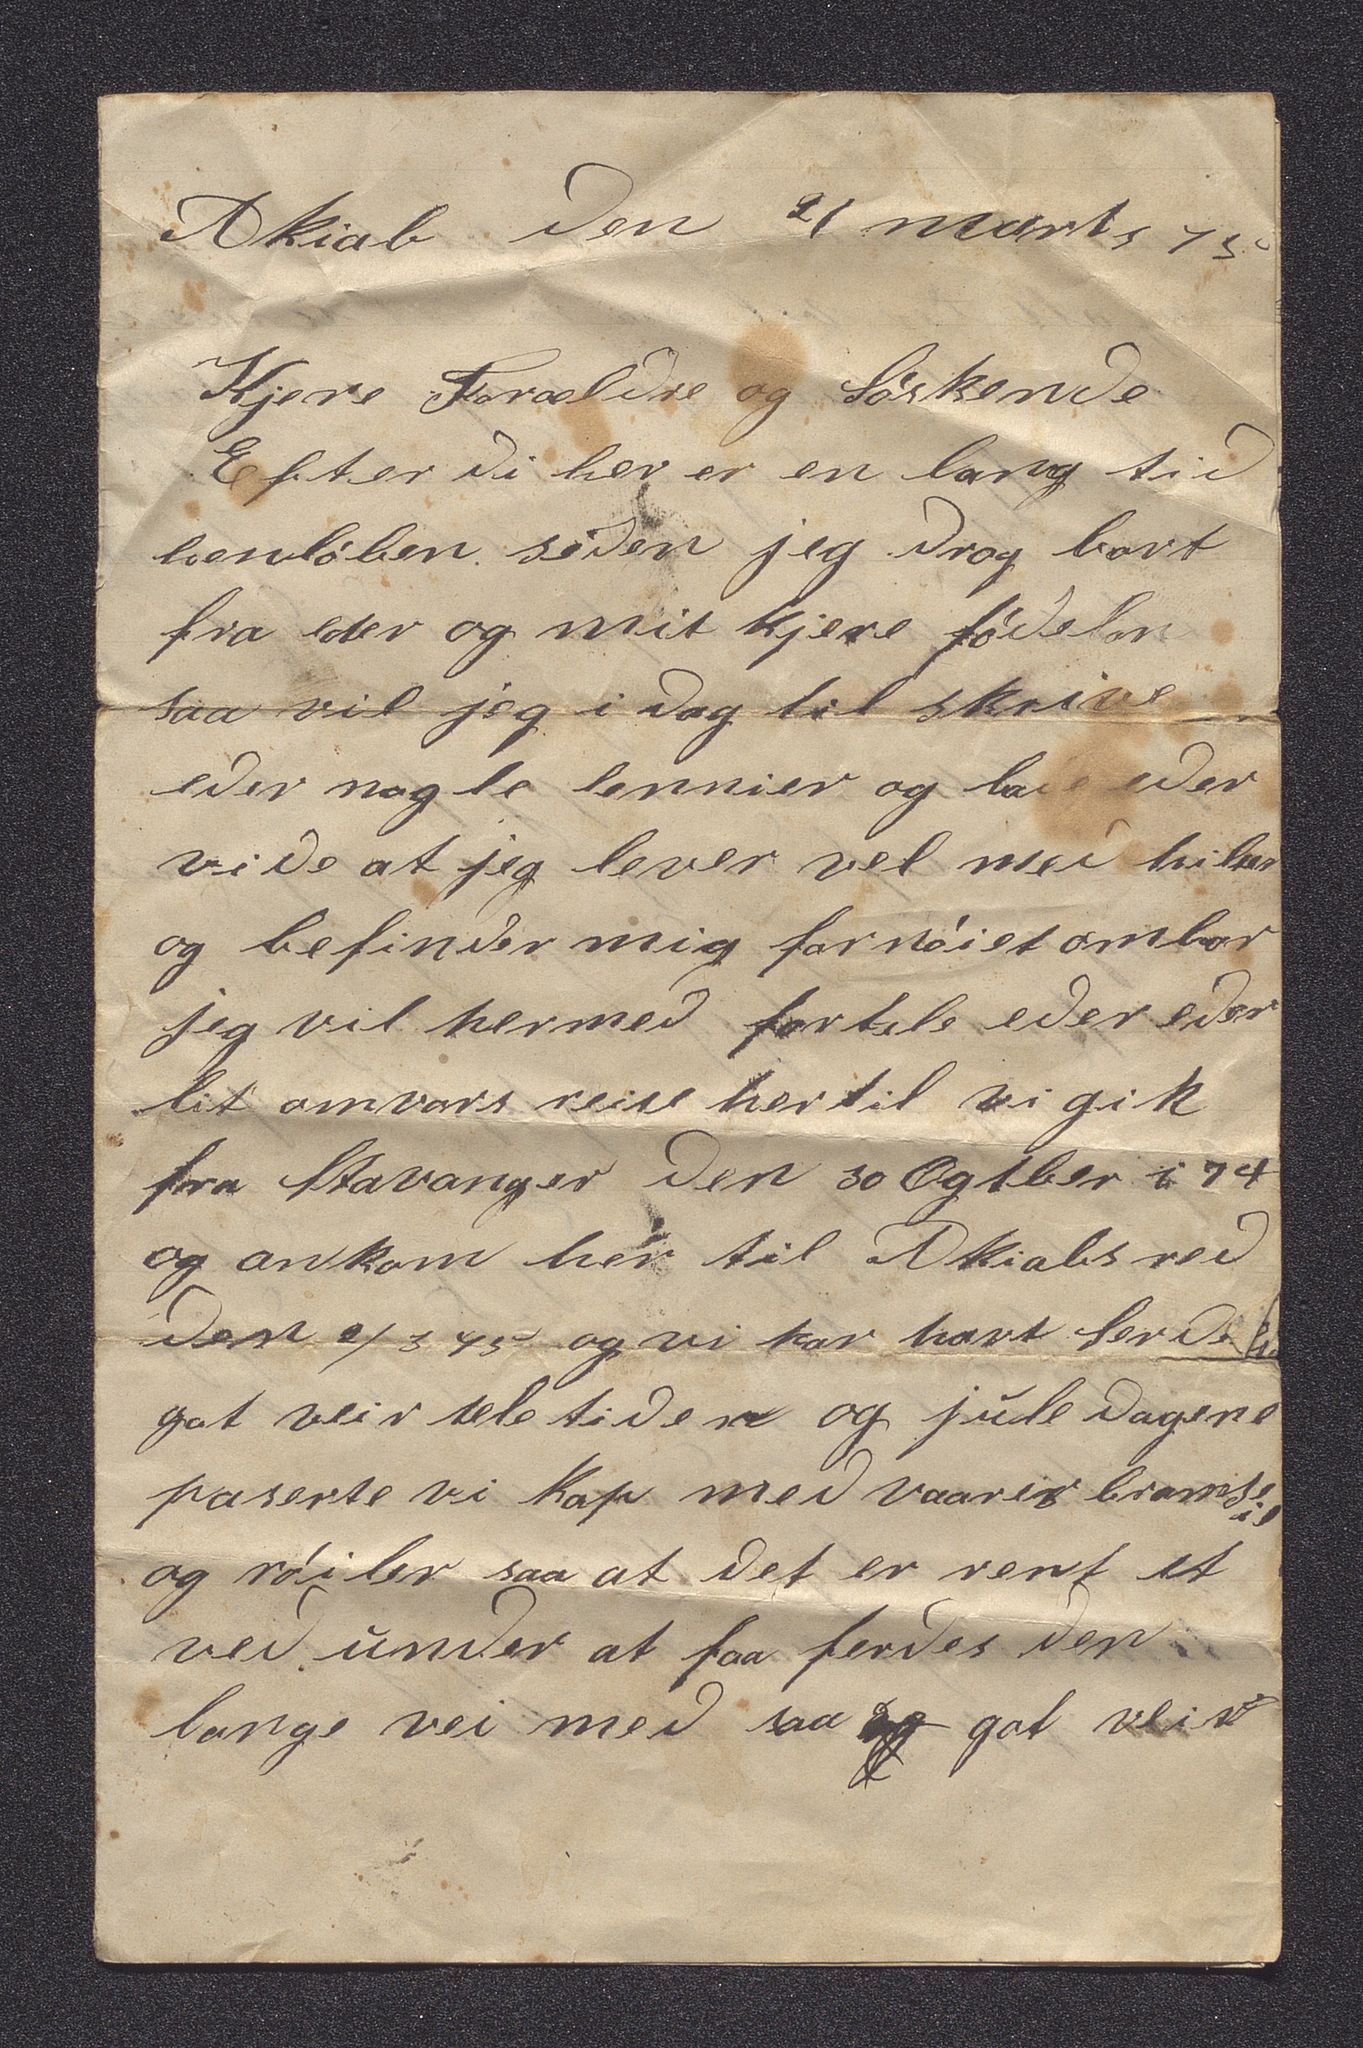 Akiab den 21 marts 75
Kjere Foraldre og Söskende
Efter di her er en lang tid
henlöben siden jeg drog bort
fra eder og mit kjere födelan
saa vil jeg i dag til skrive
eder nogle lennier og lade eder
vide at jeg lever vel med hilsen
og befinder mig fornöiet ombor
jeg vil hermed fortele eder eder
lit omvors reise hertil vi gik
fra Stavanger den 30 Ogtber i 74
og ankom her til Akiabs red
den 2/3 75 og vi har havt
got veir hele tiden og jule dagene
paserte vi Kap med vaarer bramseil
og röiler saa at det er rent et
ved under at faa ferdes den
lange vei med saa got veir